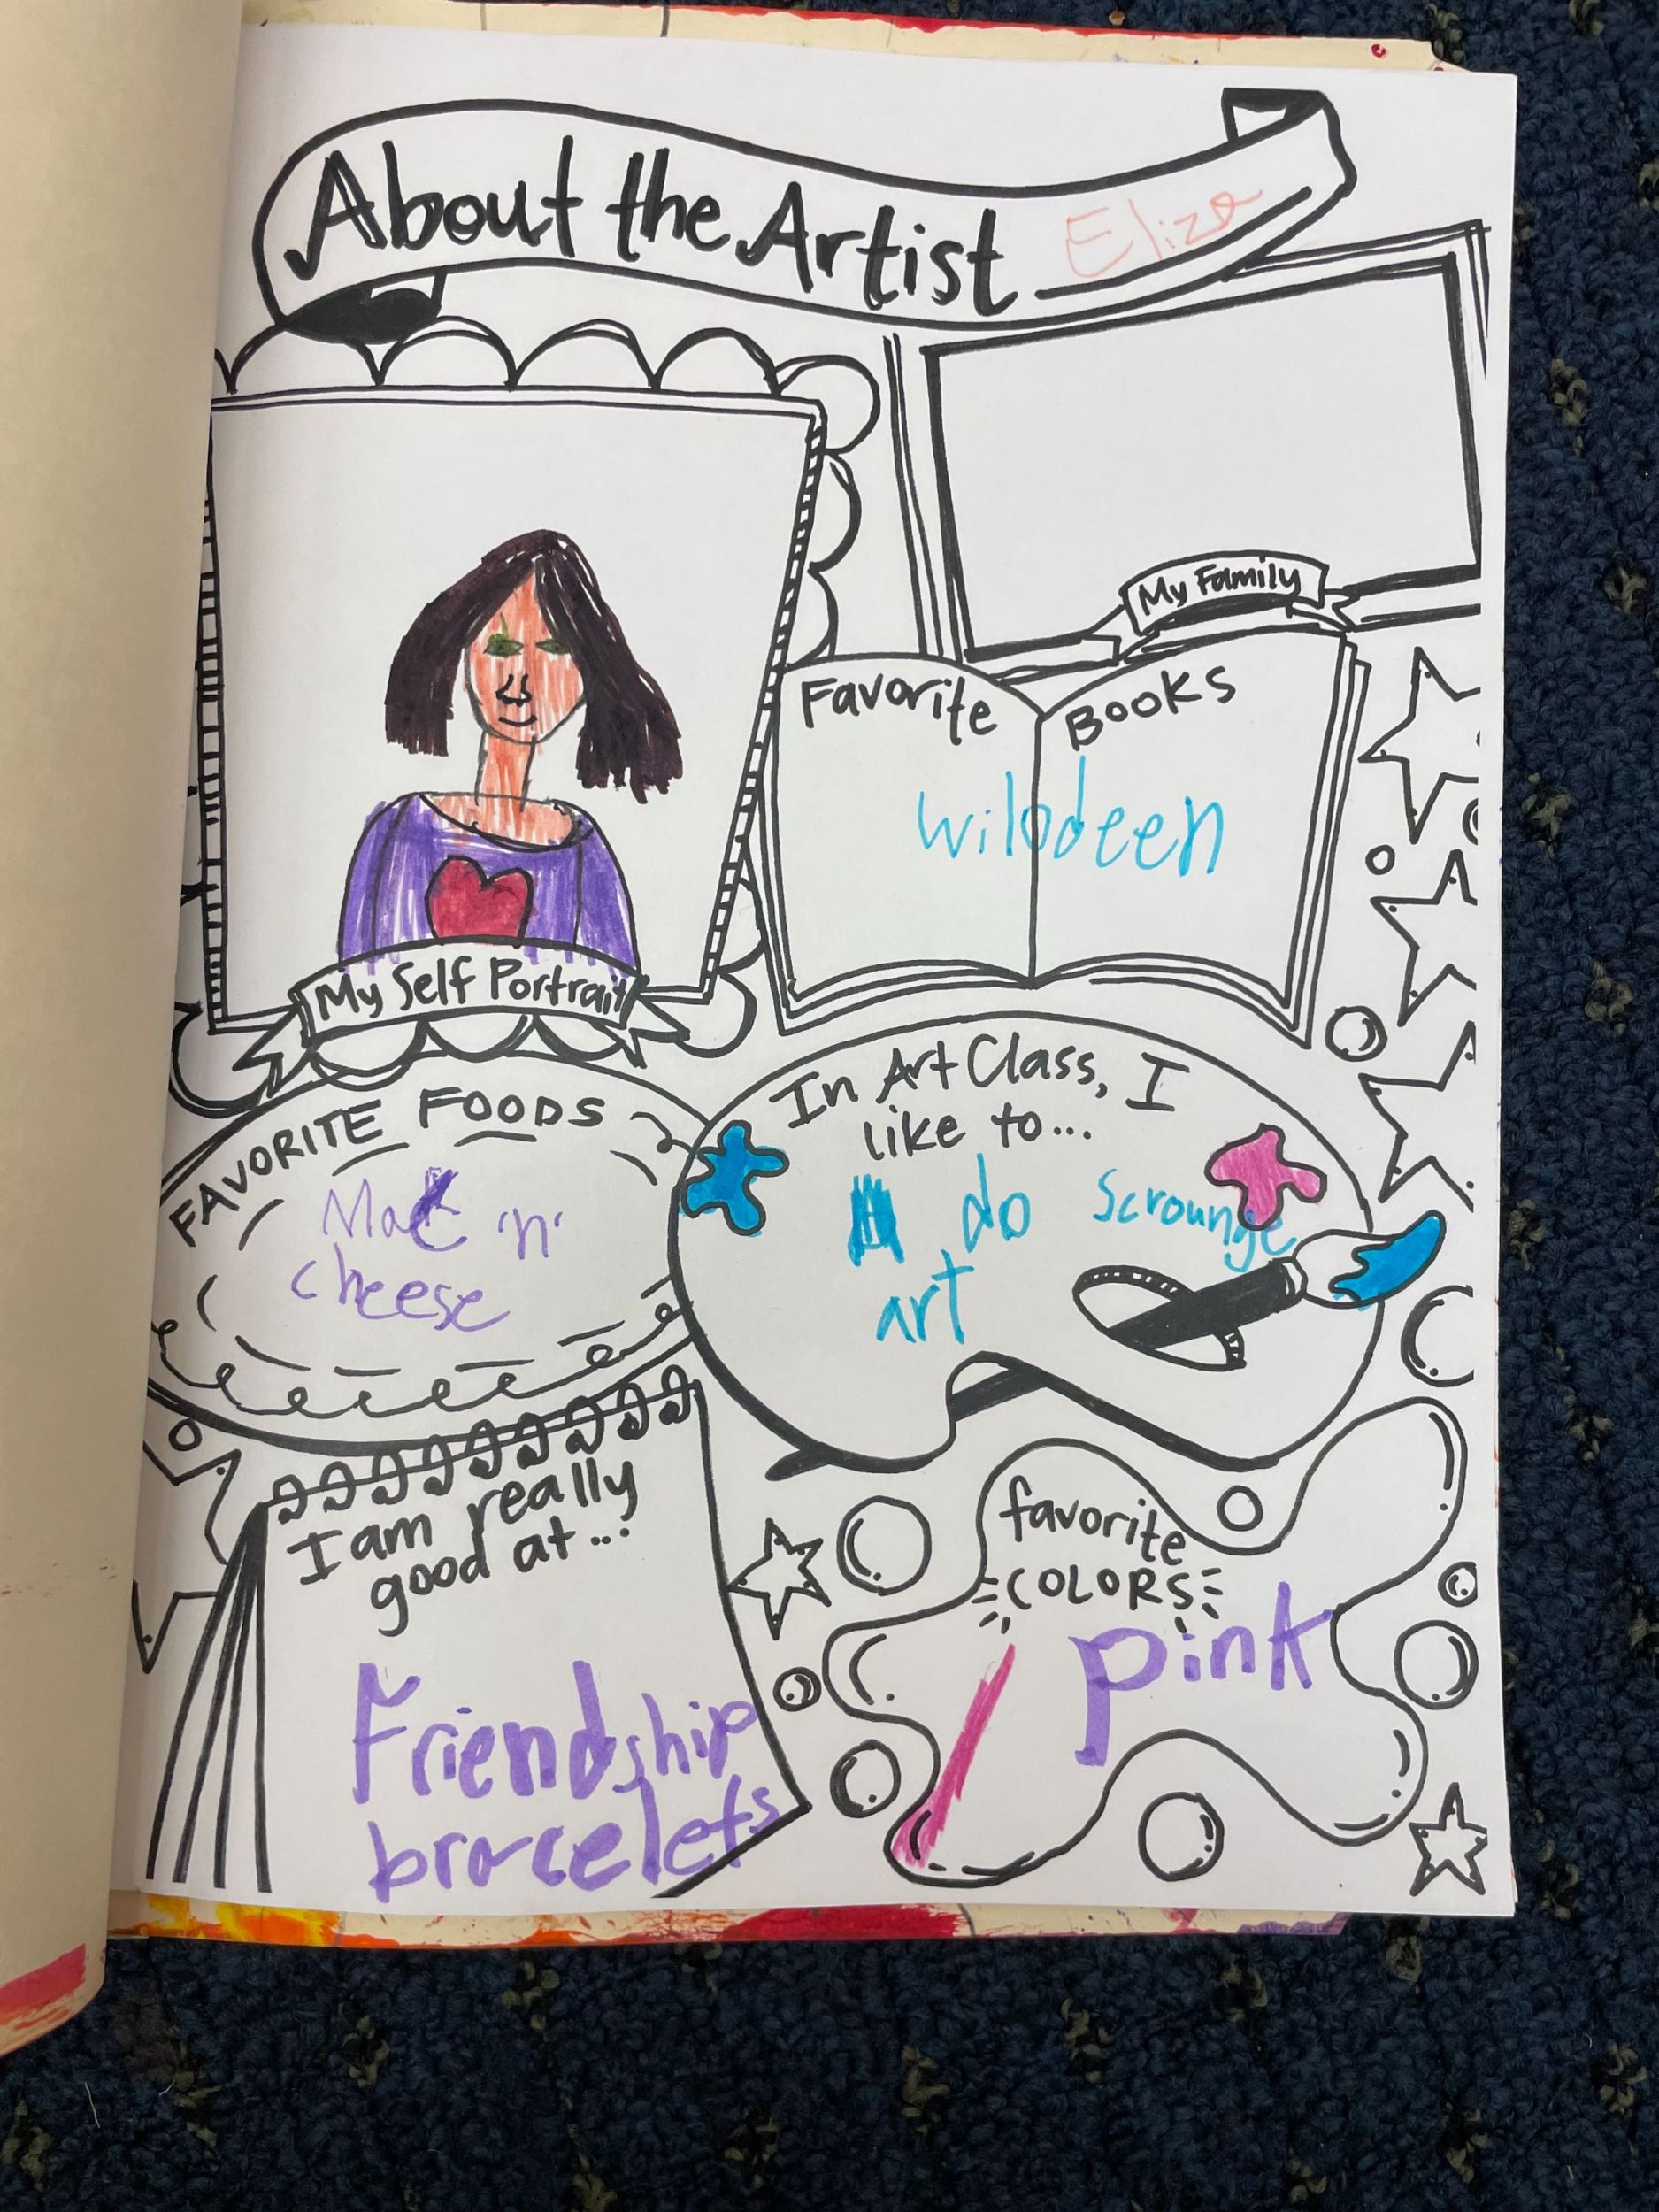 About the Artist Eliza
My Family
Favorite Books
wilodeen
My Self Portrait
FAVORITE FOODS
Mac 'n'
cheese
In Art Class, I
like to...
do scrounge
art
I am really
good at...
Friendship
bracelets
favorite
COLORS
pink